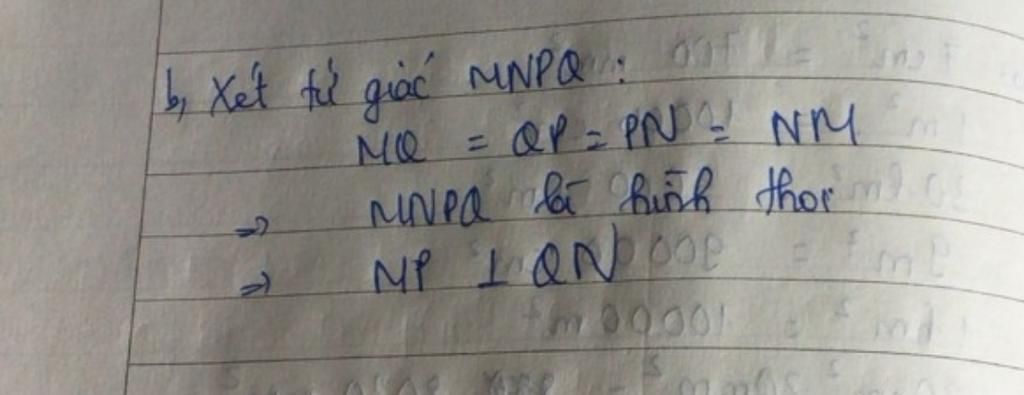 b, Xét tứ giác MNPQ :
MQ = QP = PN = NM
=> MNPQ là hình thoi
=> MP ⊥ QN